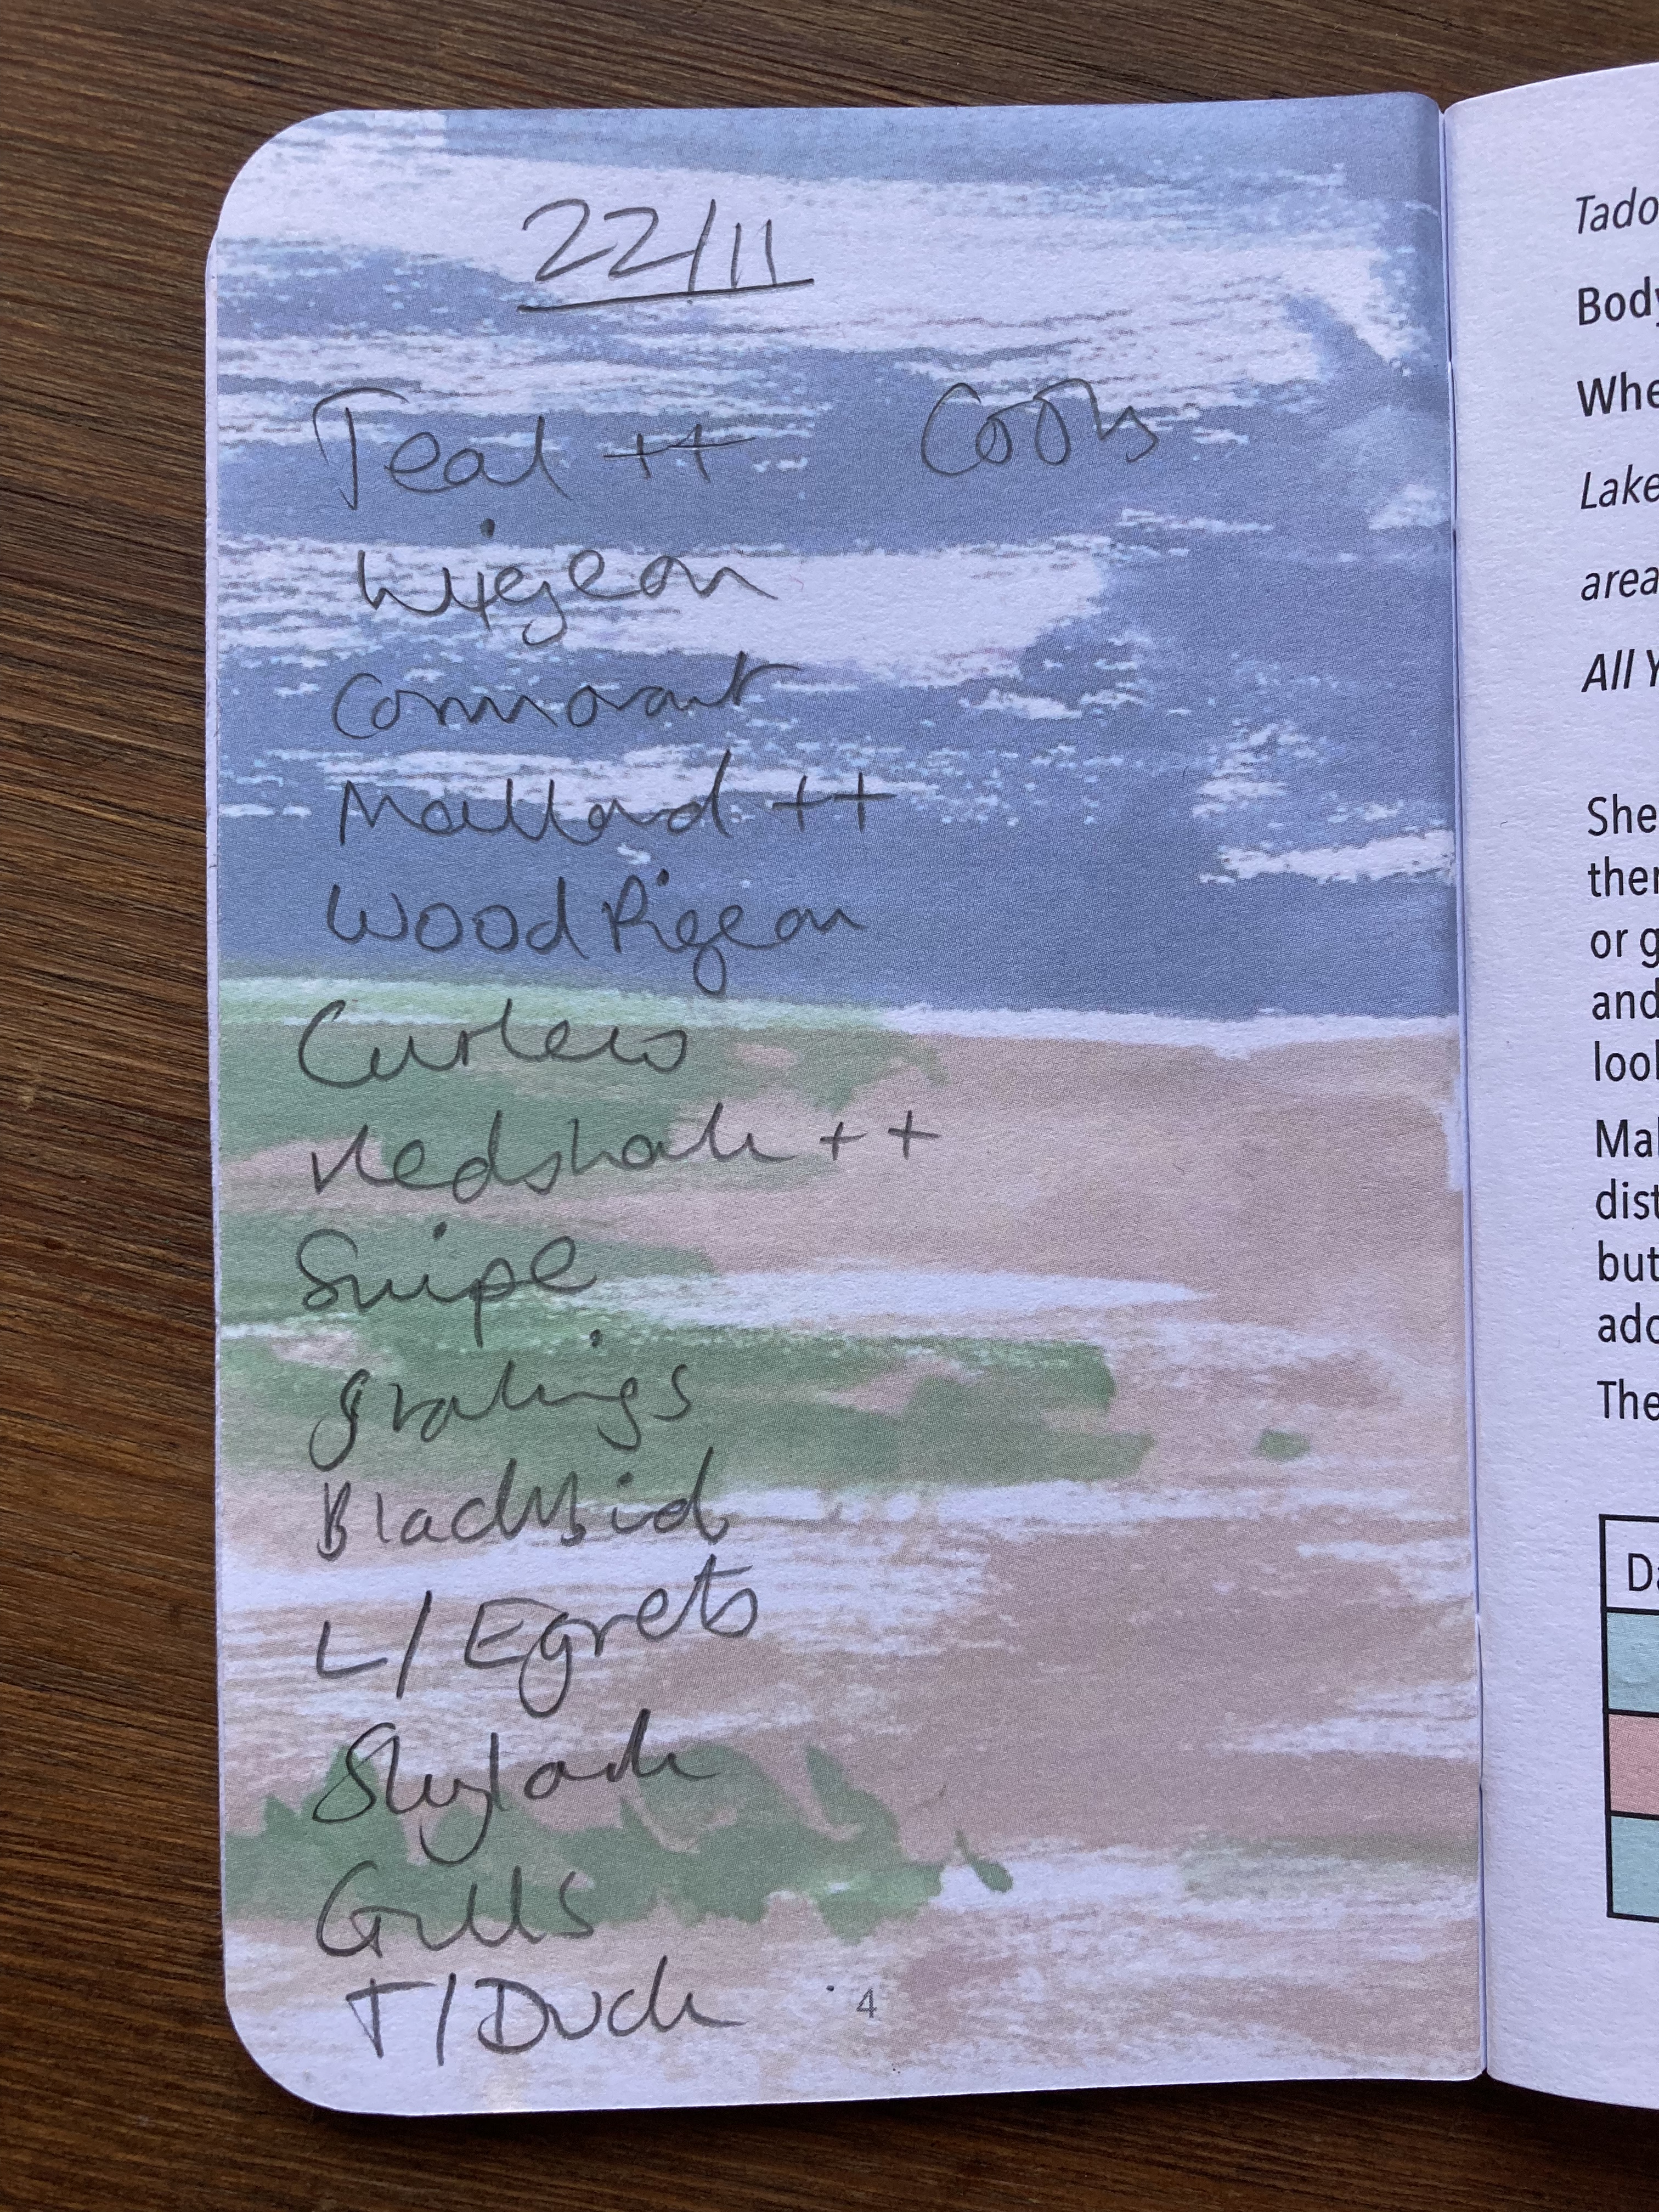 22/11
Teal ++ Coots
Wigeon
Cormorant
Mallard ++
Wood Pigeon
Curlew
Redshank ++
Snipe
Blackbird
L/Egrets
Skylark
Gulls
T/Duck
4
Tado
Body
Whe
Lake
area
All Y
She
or g
and
Mal
dist
but
The
Da